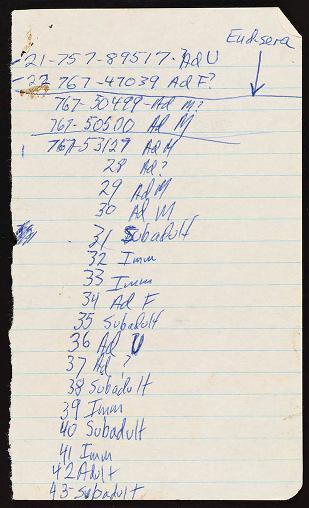 End sera
21-757-89517-?Ad U
22 767-47039 Ad F?
767-50499-Ad M?
767-50500 Ad M
767-53129 Ad M
28 Ad?
29 Ad M
30 Ad M
31 Subadult
32 Imm
33 Imm
34 Ad F
35 Subadult
36 Ad U
37 Ad ?
38 Subadult
39 Imm
40 Subadult
41 Imm
42 Adult
43 Subadult